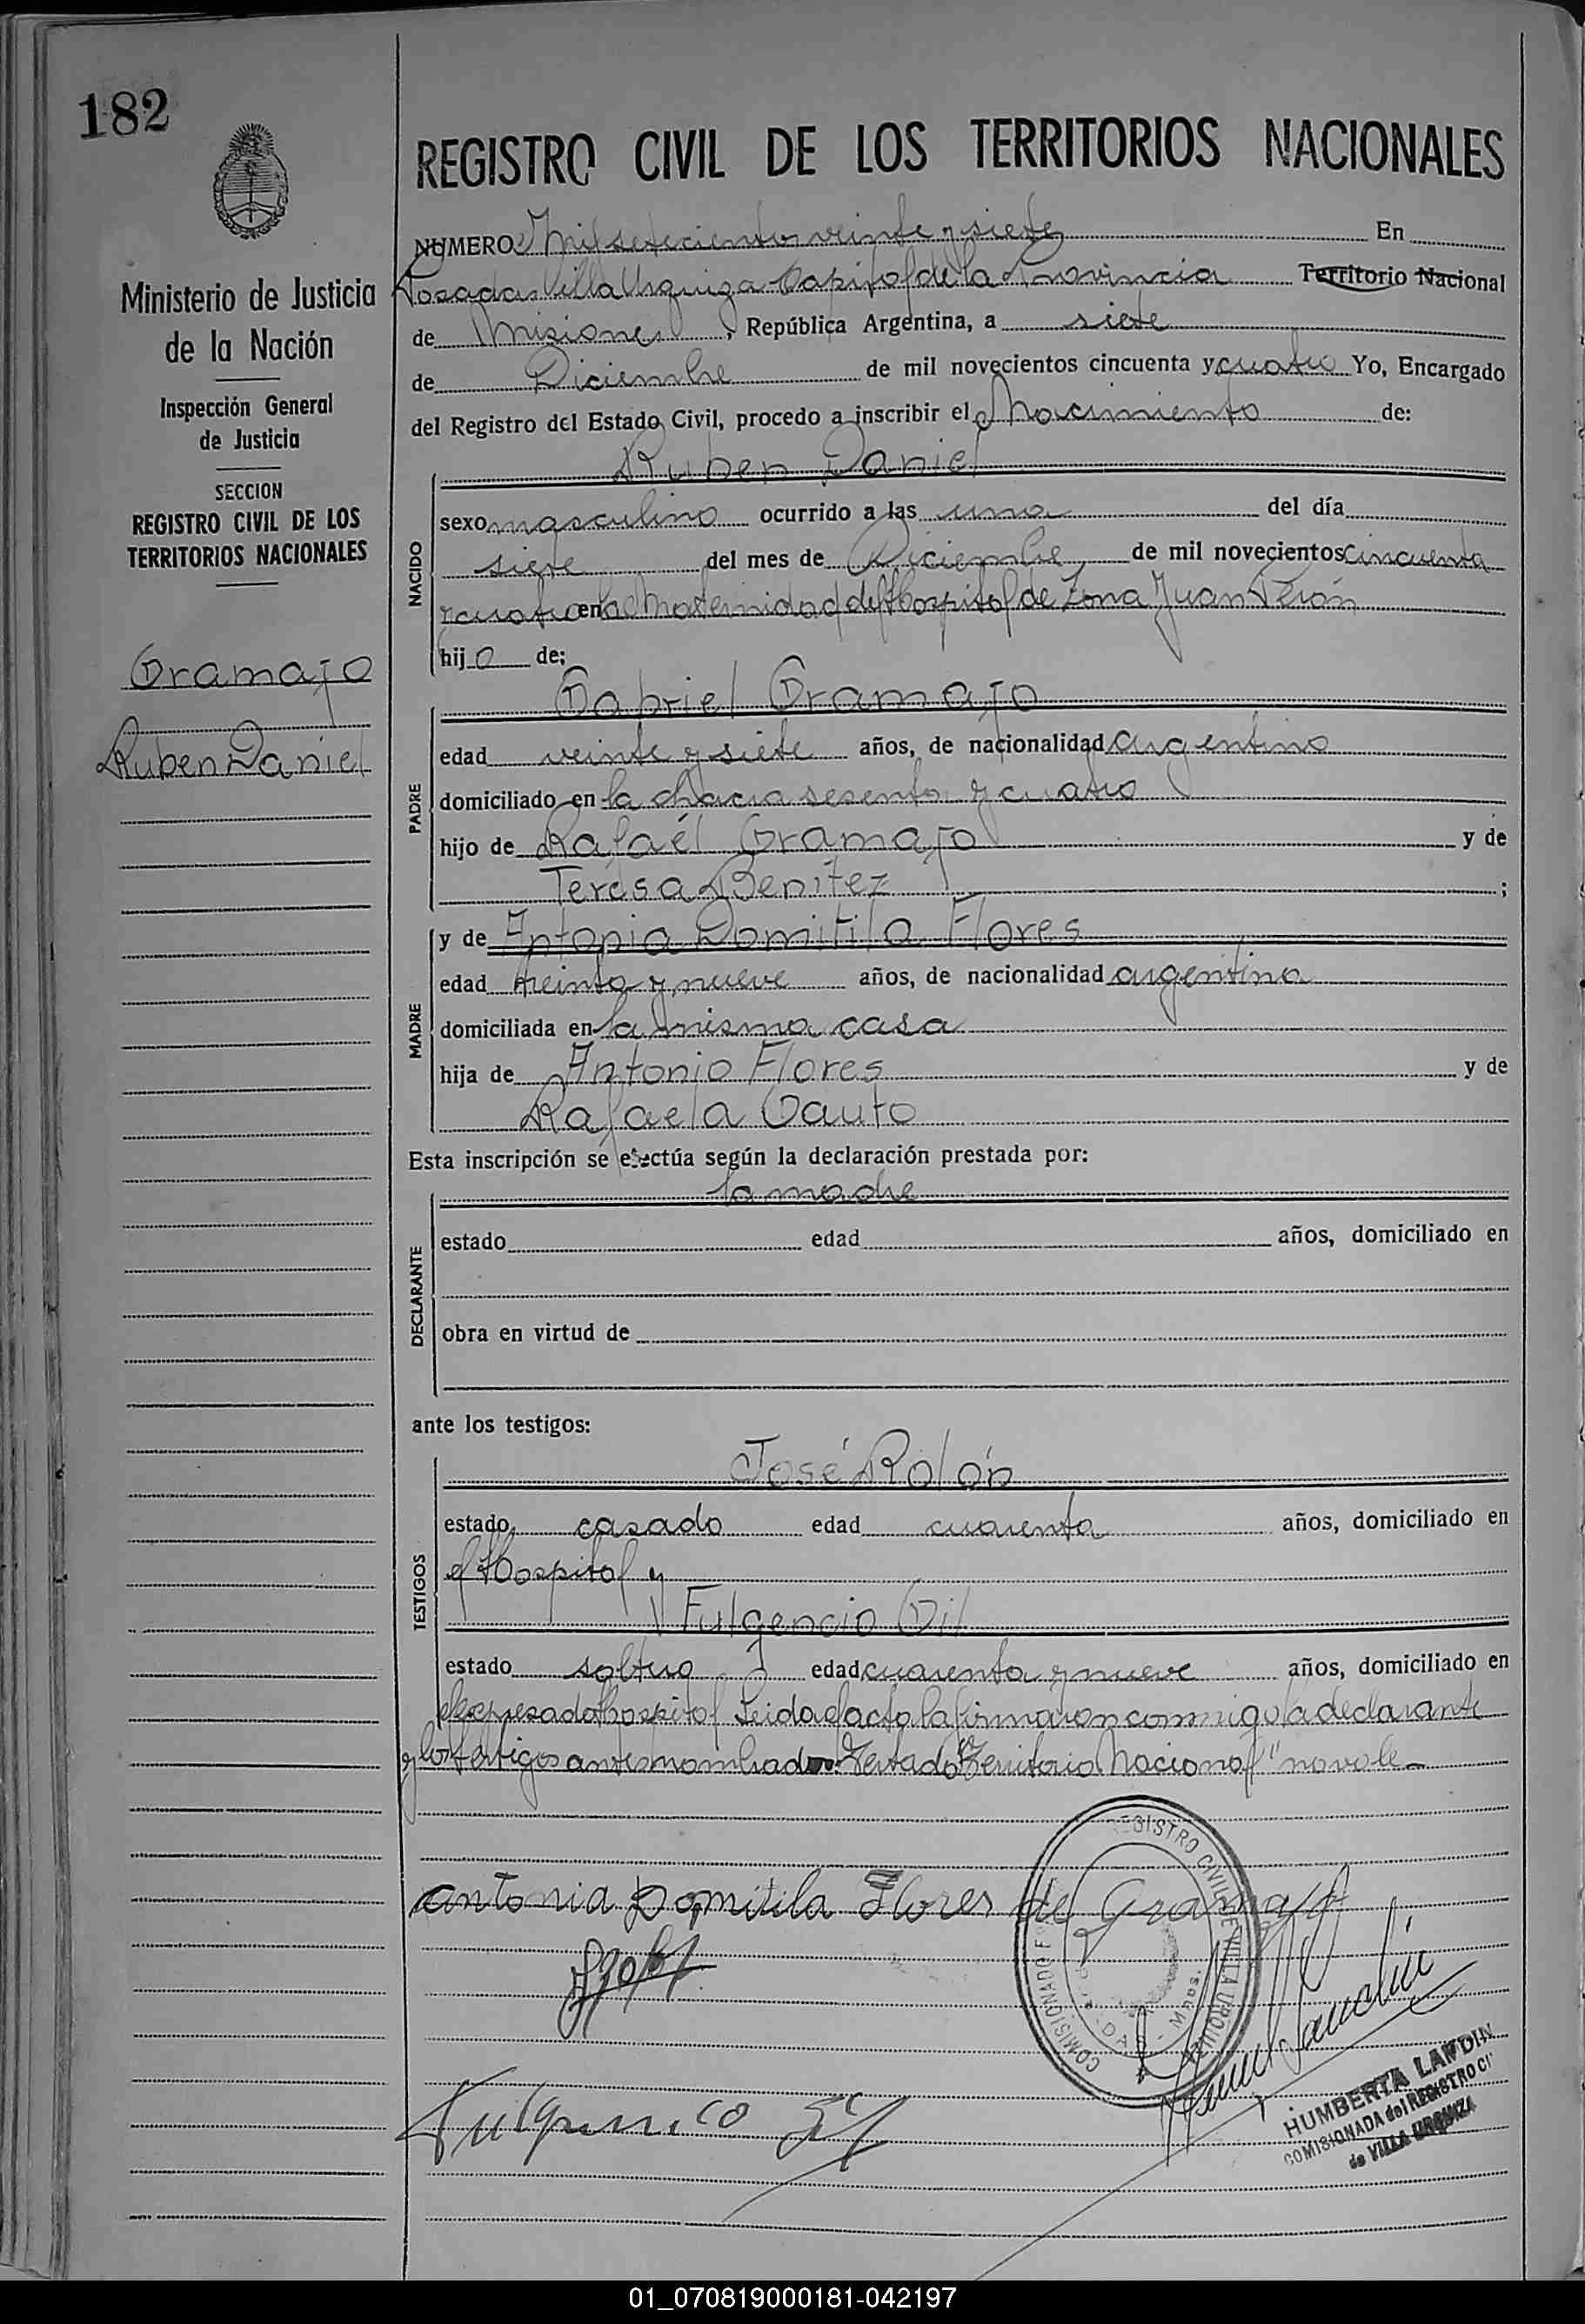 182
Ministerio de Justicia
de la Nación
Inspección General
de Justicia
SECCION
REGISTRO CIVIL DE LOS
TERRITORIOS NACIONALES
Gramajo
Ruben Daniel
REGISTRO CIVIL DE LOS TERRITORIOS NACIONALES
NUMERO Mil setecientos veinte y siete En
Posadas Villa Urquiza Capital de la Provincia Territorio Nacional
de Misiones, República Argentina, a siete
de Diciembre de mil novecientos cincuenta y cuatro Yo, Encargado
del Registro del Estado Civil, procedo a inscribir el Nacimiento de:
Ruben Daniel
NACIDO
sexo masculino ocurrido a las una del día
siete del mes de Diciembre de mil novecientos cincuenta
y cuatro en la Maternidad del Hospital de Zona Juan Perón
hijo de:
Gabriel Gramajo
PADRE
edad veinte y siete años, de nacionalidad argentino
domiciliado en la chacra sesenta y cuatro
hijo de Rafaél Gramajo y de
Teresa Benitez ;
y de Antonia Domitila Flores
MADRE
edad treinta y nueve años, de nacionalidad argentina
domiciliada en la misma casa
hija de Antonio Flores y de
Rafaela Gauto
Esta inscripción se efectúa según la declaración prestada por:
la madre
DECLARANTE
estado edad años, domiciliado en
obra en virtud de
ante los testigos:
José Rolón
TESTIGOS
estado casado edad cuarenta años, domiciliado en
el Hospital y
Fulgencio Gil
estado soltero edad cuarenta y nueve años, domiciliado en
el expresado Hospital Leida el acta la firmaron conmigo la declarante
y los testigos antes nombrados. Testado "Territorio Nacional" no vale.-
Antonia Domitila Flores de Gramajo
REGISTRO CIVIL DE VILLA URQUIZA
COMISIONADO
Fulgencio Gil
HUMBERTA LANDIN
COMISIONADA del REGISTRO CI
de VILLA URQUIZA
01_070819000181-042197